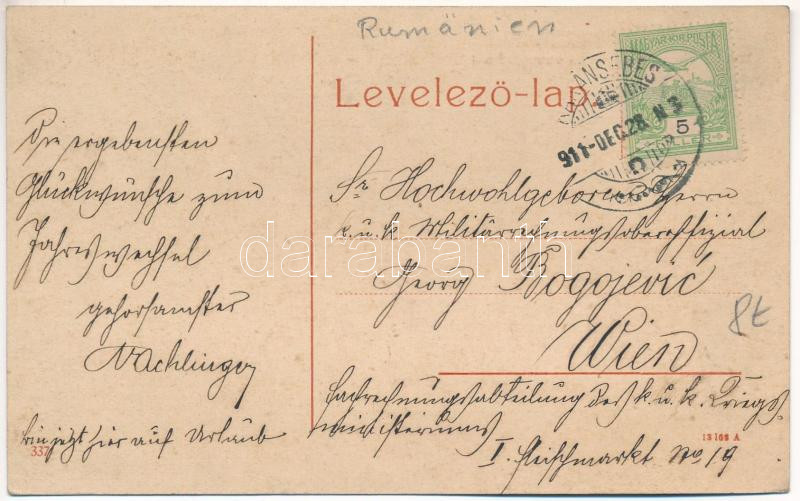 Rumänien
Levelező-lap.
KARÁNSEBES
911 DEC. 28. N 3
D
MAGYAR KIR. POSTA
5
FILLÉR
Die ergebensten
Glückwünsche zum
Jahreswechsel
gehorsamster
Nachlinger
bin jetzt hier auf Urlaub
337
Sr. Hochwohlgeboren Herrn
k. u. k. Militärrechnungsoberoffizial
Georg Bogojević
Wien
Fachrechnungsabteilung des k. u. k. Kriegs-
ministeriums
I. Fleischmarkt No 19
8t
13168 A
darabanth